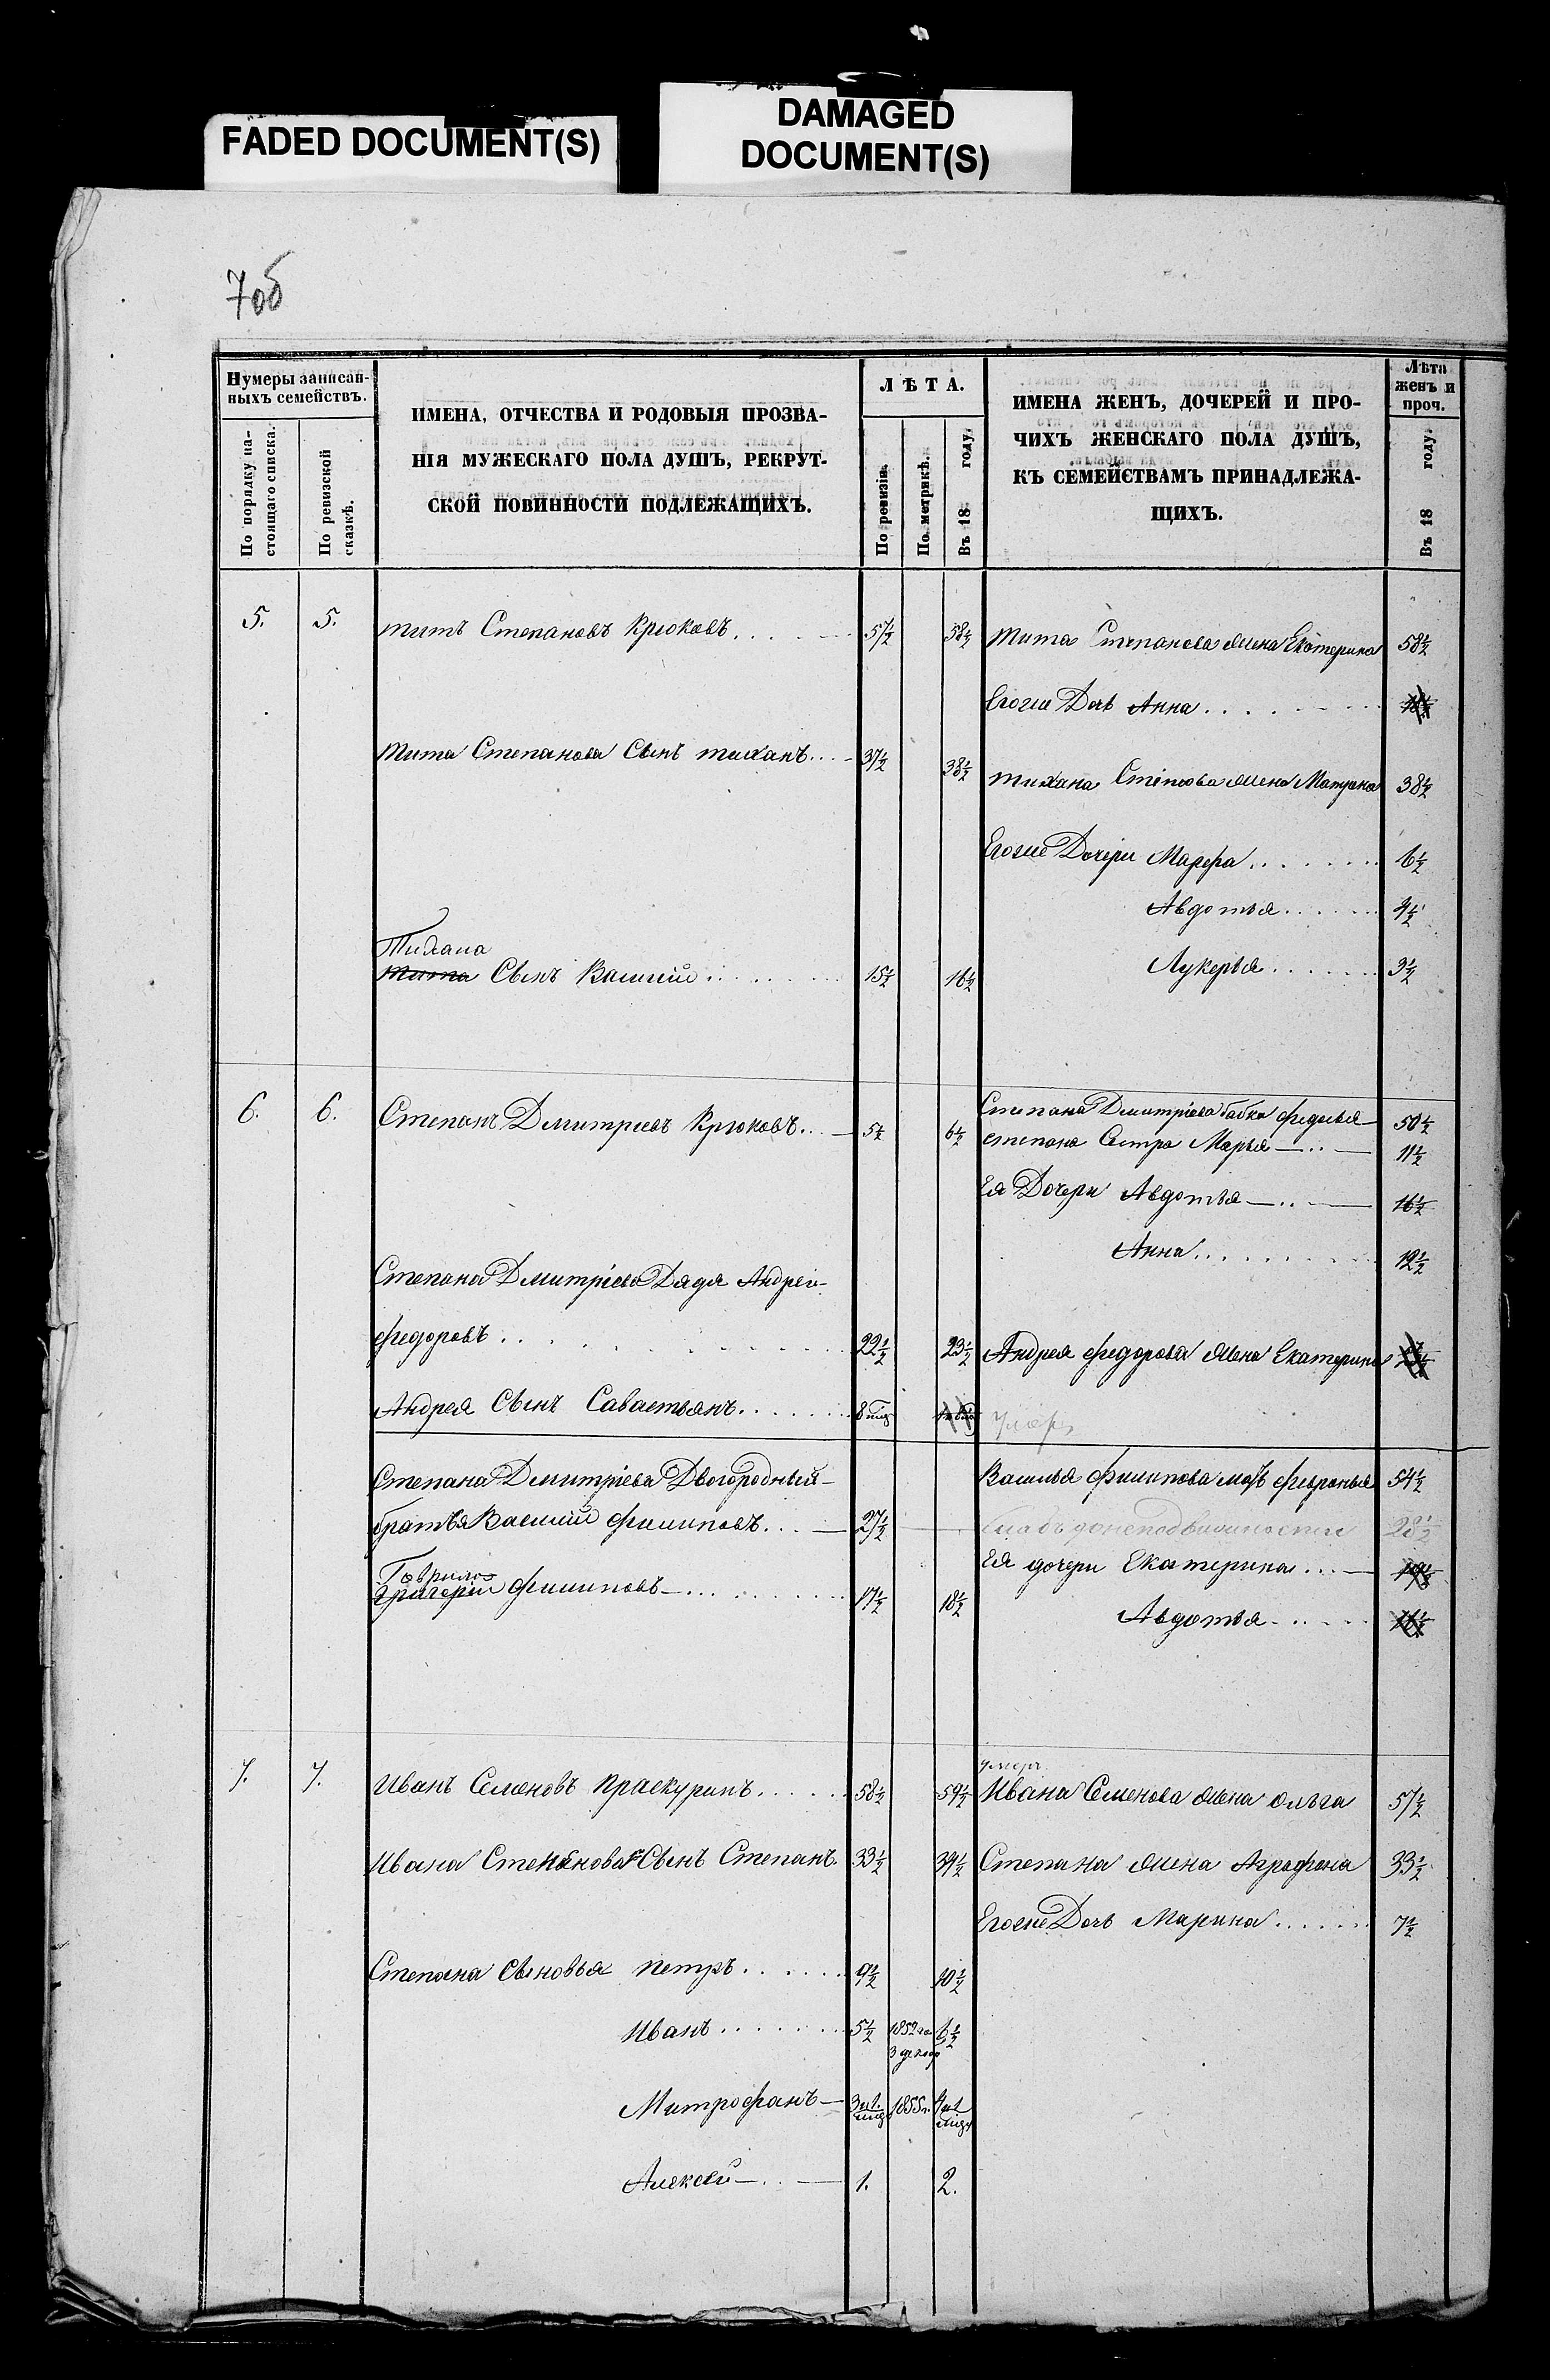 FADED DOCUMENT(S)
DAMAGED
DOCUMENT(S)
7об
Нумеры записан-
ныхъ семействъ.
По порядку на-
стоящаго списка.
По ревизской
сказкѣ.
ИМЕНА, ОТЧЕСТВА И РОДОВЫЯ ПРОЗВА-
НІЯ МУЖЕСКАГО ПОЛА ДУШЪ, РЕКРУТ-
СКОЙ ПОВИННОСТИ ПОДЛЕЖАЩИХЪ.
ЛѢТА.
По ревизіи.
По метрикѣ.
Въ 18 году.
ИМЕНА ЖЕНЪ, ДОЧЕРЕЙ И ПРО-
ЧИХЪ ЖЕНСКАГО ПОЛА ДУШЪ,
КЪ СЕМЕЙСТВАМЪ ПРИНАДЛЕЖА-
ЩИХЪ.
Лѣта
женъ и
проч.
Въ 18 году.
5. 5. титъ Степановъ Крюковъ 57½ 58½ тита Степанова жена Екатерина 58½
Егоже Дочь Анна
тита Степанова Сынъ тиханъ 37½ 38½
тихана жена Матрена 38½
Егоже Дочери Марфа 6½
Авдотья 4½
Тихана
тита Сынъ Василий 15½ 16½ Лукерья 3½
6. 6. Степанъ Дмитриевъ Крюковъ 5½ 6½ Степана Дмитріева бабка федосья 50½
степана Сестра Марья 11½
Ея Дочери Авдотья 16½
Анна 12½
Степана Дмитріева Дядя Андрей
федоровъ 22½ 23½ Андрея федорова жена Екатерина
Андрея Сынъ Савастьянъ 8 мѣд умеръ
Степана Дмитріева Двогородныя
братья Василий филиповъ 27½ Василья филипова мать февронья 54½
28½
Гаврило
григорій филиповъ 17½ 18½ Ея дочери Екатерина 19½
Авдотья 16½
умеръ
7. 7. Иванъ Семеновъ праскуринъ 58½ 59½ Ивана Семенова жена ольга 57½
Ивана Сынъ Степанъ 33½ 34½ Степана жена Аграфена 33½
Егоже Дочь Марина 7½
Степана Сыновья петръ 9½ 10½
Иванъ 5½ 1852 го 6½
3 декаб
Митрофанъ 3 1855 г. 4
Алексей 1. 2.